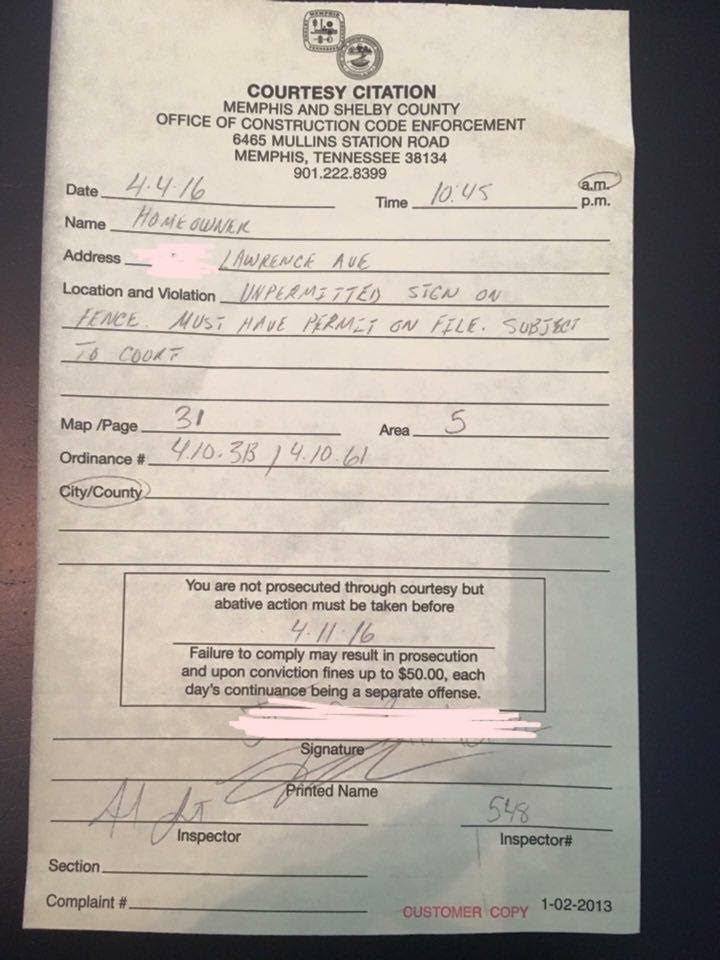 COURTESY CITATION
MEMPHIS AND SHELBY COUNTY
OFFICE OF CONSTRUCTION CODE ENFORCEMENT
6465 MULLINS STATION ROAD
MEMPHIS, TENNESSEE 38134
901.222.8399
Date 4.4.16 Time 10:45 a.m. p.m.
Name HOMEOWNER
Address LAWRENCE AVE
Location and Violation UNPERMITTED SIGN ON
FENCE. MUST HAVE PERMIT ON FILE. SUBJECT
TO COURT
Map /Page 31 Area 5
Ordinance # 4.10.3B / 4.10.61
City/County
You are not prosecuted through courtesy but
abative action must be taken before
4.11.16
Failure to comply may result in prosecution
and upon conviction fines up to $50.00, each
day's continuance being a separate offense.
Signature
Printed Name
548
Inspector Inspector#
Section
Complaint #
CUSTOMER COPY 1-02-2013